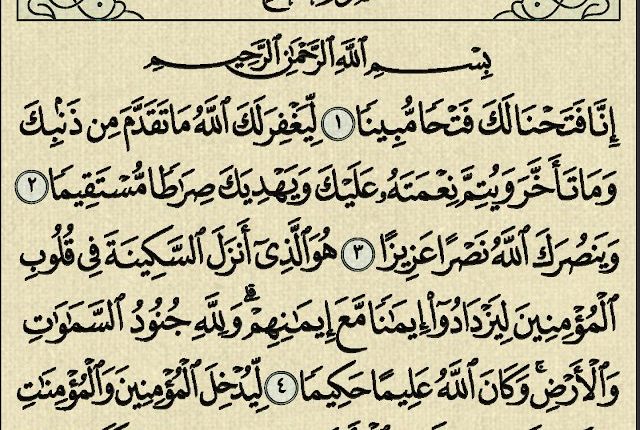 بِسْمِ ٱللَّهِ ٱلرَّحْمَٰنِ ٱلرَّحِيمِ
إِنَّا فَتَحْنَا لَكَ فَتْحًا مُّبِينًا ١ لِّيَغْفِرَ لَكَ ٱللَّهُ مَا تَقَدَّمَ مِن ذَنۢبِكَ
وَمَا تَأَخَّرَ وَيُتِمَّ نِعْمَتَهُۥ عَلَيْكَ وَيَهْدِيَكَ صِرَٰطًا مُّسْتَقِيمًا ٢
وَيَنصُرَكَ ٱللَّهُ نَصْرًا عَزِيزًا ٣ هُوَ ٱلَّذِىٓ أَنزَلَ ٱلسَّكِينَةَ فِى قُلُوبِ
ٱلْمُؤْمِنِينَ لِيَزْدَادُوٓا۟ إِيمَٰنًا مَّعَ إِيمَٰنِهِمْ ۗ وَلِلَّهِ جُنُودُ ٱلسَّمَٰوَٰتِ
وَٱلْأَرْضِ ۚ وَكَانَ ٱللَّهُ عَلِيمًا حَكِيمًا ٤ لِّيُدْخِلَ ٱلْمُؤْمِنِينَ وَٱلْمُؤْمِنَٰتِ